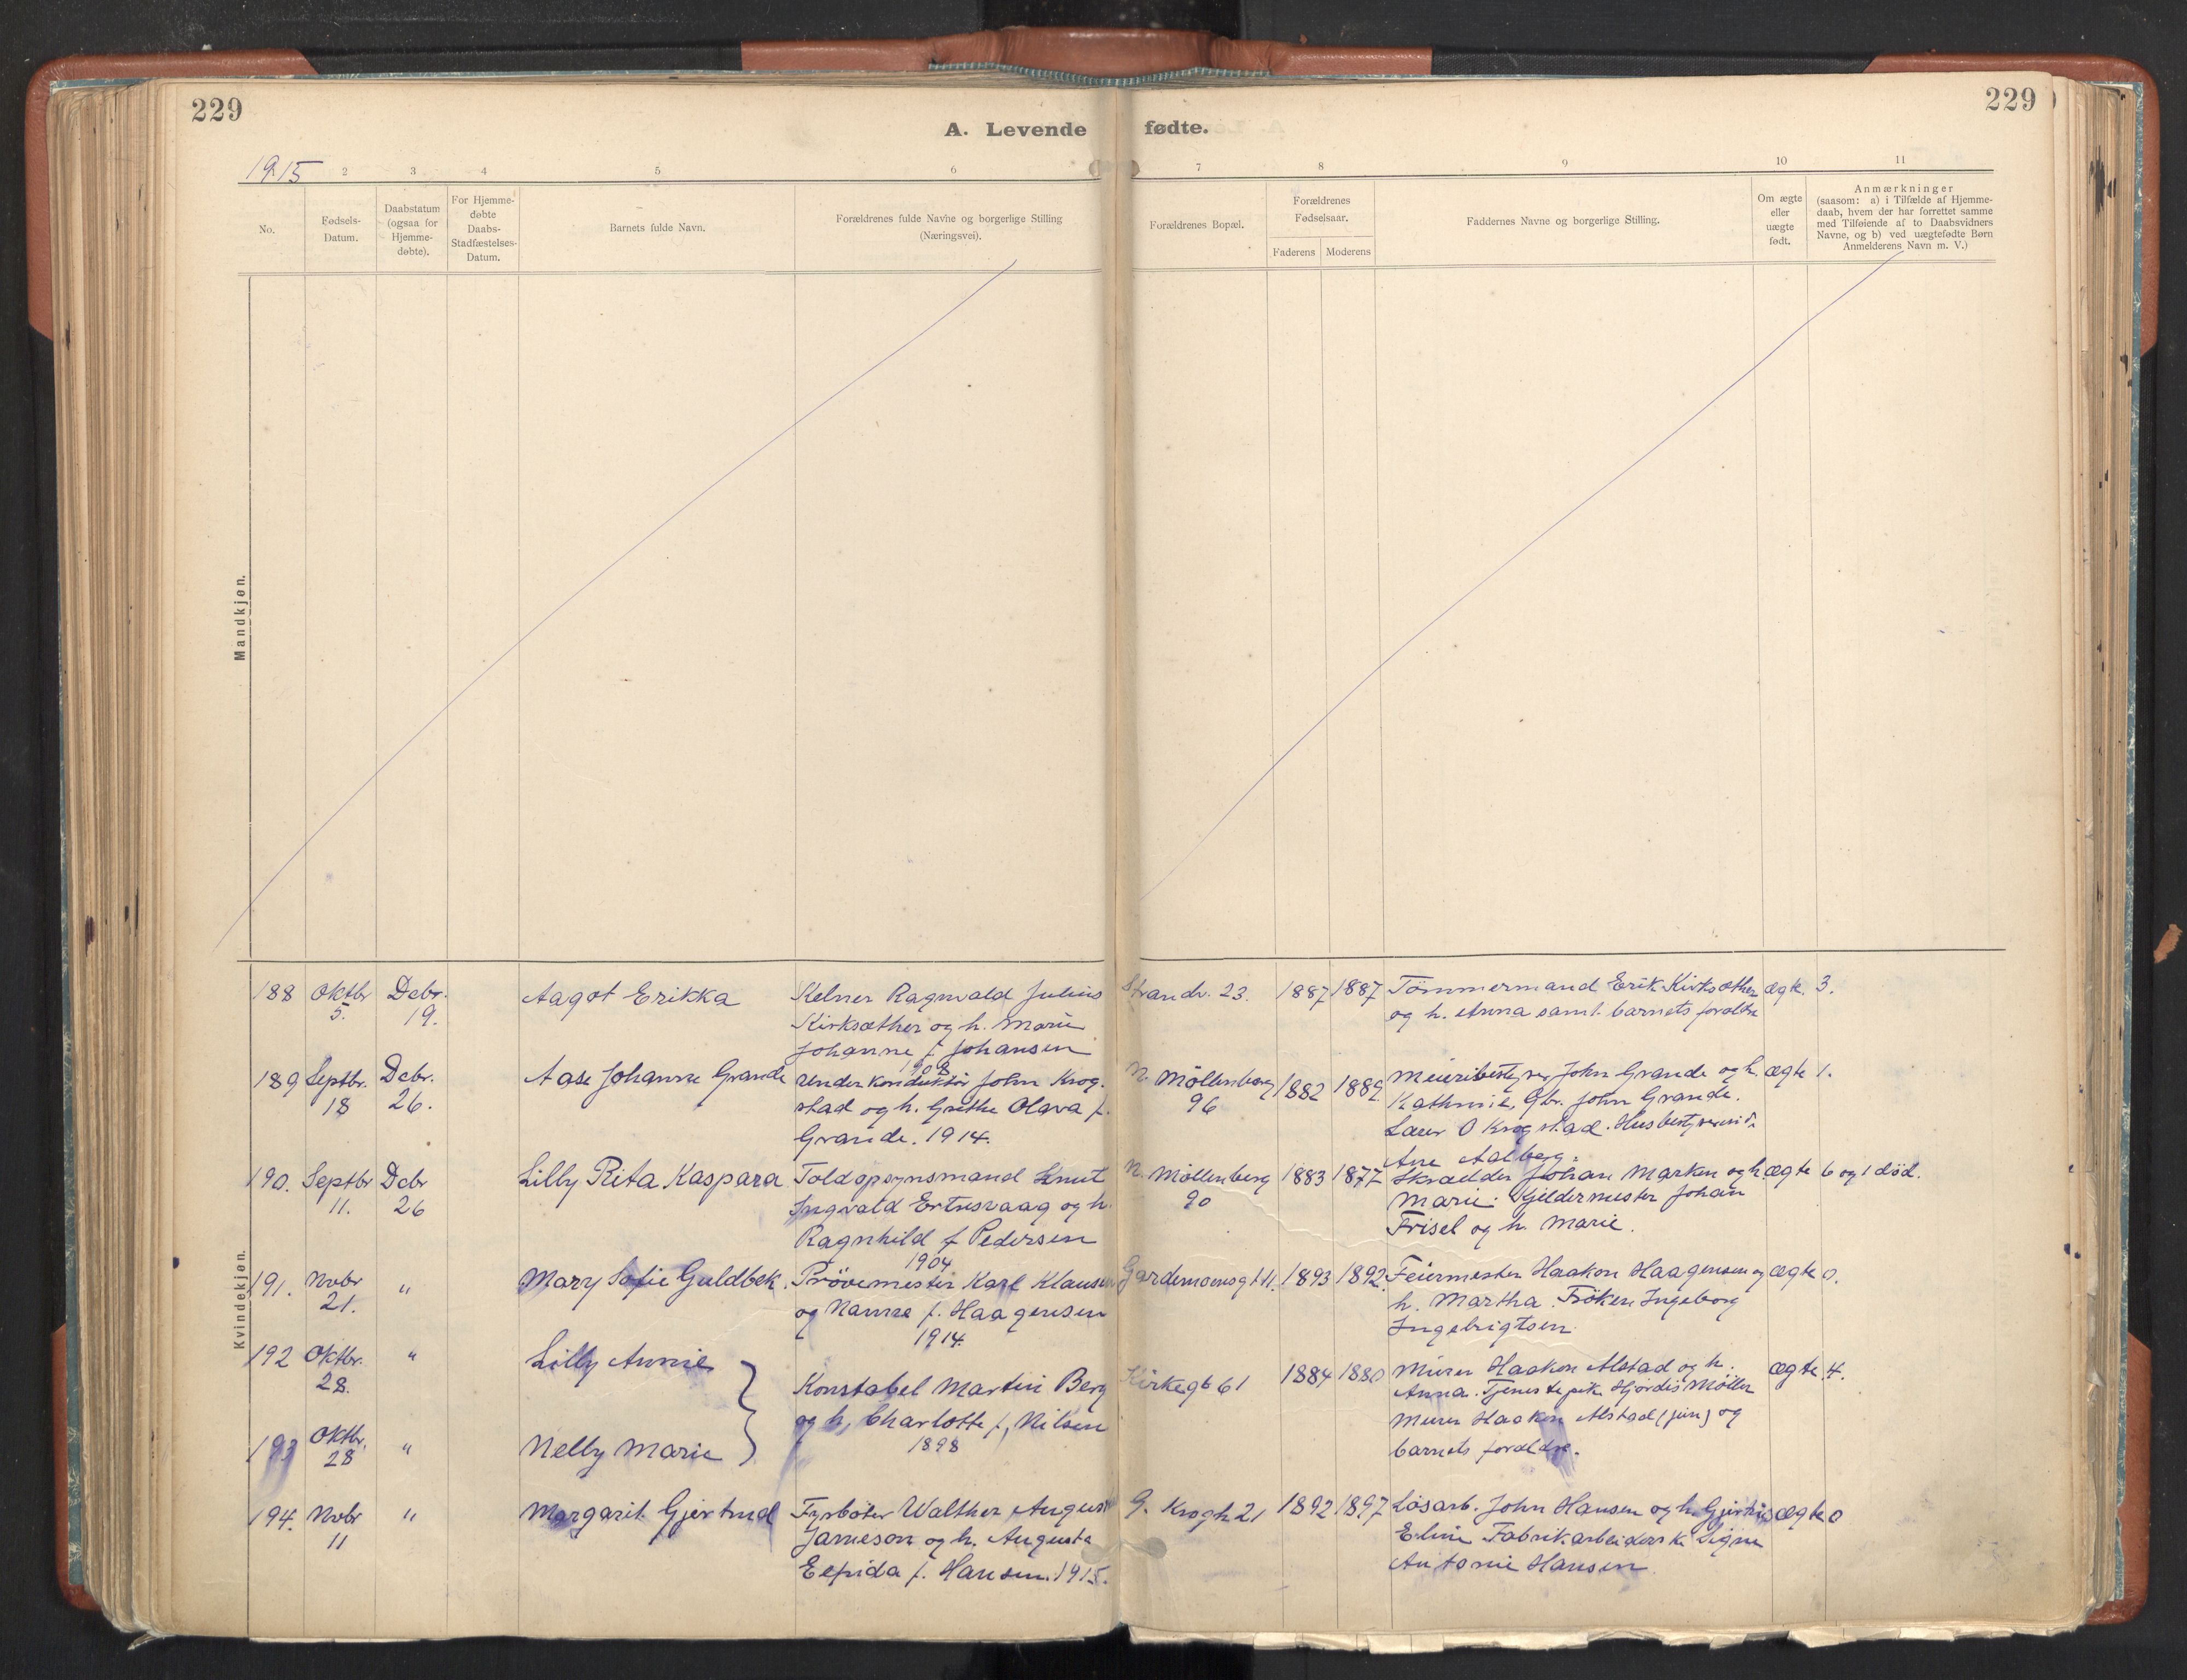 229
229
A. Levende fødte.
1915
2
3
4
5
6
7
8
9
10
11
No.
Fødsels-
Datum.
Daabstatum
(ogsaa for
Hjemme-
døbte).
For Hjemme-
døbte
Daabs-
Stadfæstelses-
Datum.
Barnets fulde Navn.
Forældrenes fulde Navne og borgerlige Stilling
(Næringsvei).
Forældrenes Bopæl.
Forældrenes
Fødselsaar.
Faderens
Moderens
Faddernes Navne og borgerlige Stilling.
Om ægte
eller
uægte
født.
Anmærkninger
(saasom: a) i Tilfælde af Hjemme-
daab, hvem der har forrettet samme
med Tilføiende af to Daabsvidners
Navne, og b) ved uægtefødte Børn
Anmelderens Navn m. V.)
Mandkjøn.
Kvindekjøn.
188
Oktbr
5.
Debr.
19.
Aagot Erikka
Kelner Ragnvald Julius
Kirksæther og h. Marie
Johanne f. Johansen
1908
Strandv. 23.
1887
1887
Tömmermand Erik Kirksæther
og h. Anna samt barnets forældre
ægte.
3.
189
Septbr.
18
Debr.
26.
Aase Johanne Grande
Underkonduktör John Krog-
stad og h. Grethe Olava f.
Grande. 1914.
N. Möllenberg
96
1882
1889.
Meieribestyrer John Grande og h.
Kathrine, Gbr. John Grande.
Lærer O Krogstad. Husbestyrerinde
Ane Aalberg.
ægte
1.
190.
Septbr
11.
Debr
26
Lilly Rita Kaspara
Toldopsynsmand Knut
Ingvald Ertnsvaag og h.
Ragnhild f Pedersen
1904
N. Möllenberg
90
1883
1877
Skrædder Johan Marken og h.
Marie. Gjildermester Johan
Frisel og h. Marie.
ægte
6 og 1 död.
191.
Novbr
21.
"
Mary Sofie Guldbek.
Prövemester Karl Klausen
og Nanna f. Haagensen
1914.
Gardemoensgt 11.
1893
1892.
Feiermester Haakon Haagensen og
h. Martha. Fröken Ingeborg
Ingebrigtsen
ægte
0.
192
Oktbr.
28.
"
Lilly Annie
Konstabel Martin Berg
og h. Charlotte f. Nilsen
1898
Kirkegt 61
1884
1880
Murer Haakon Alstad og h.
Anna. Tjenestepik. Hjördis Möller
Murer Haakon Alstad (jun) og
barnets forældre.
ægte
4.
193
Oktbr.
28
"
Nelly Marie
194.
Novbr
11
"
Margarit Gjertrud
Fyrböter Walther August
Jameson og h. Augusta
Elfrida f. Hansen. 1915.
G. Krogh 21
1892
1897
Lösarb. John Hansen og h.
Eline Fabrikarbeiderske Signe
Antonie Hansen.
ægte
0